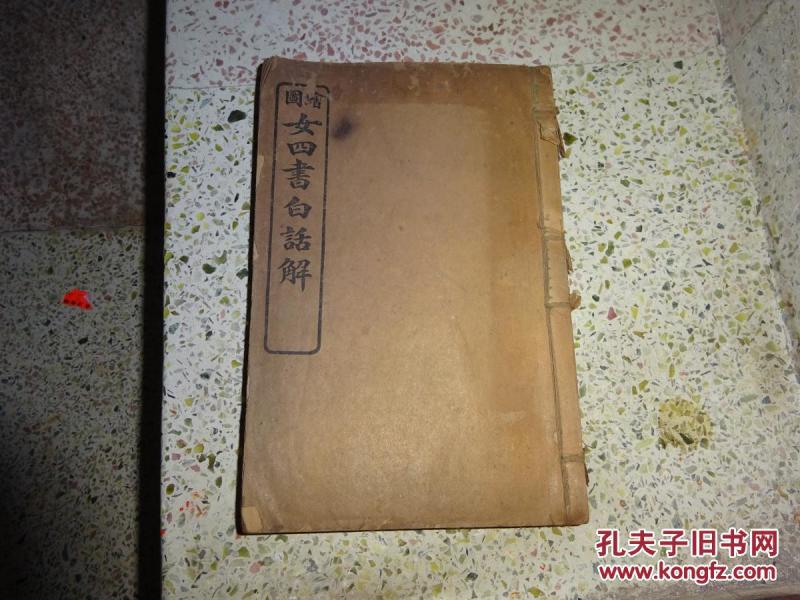 繪圖
女四書白話解
孔夫子旧书网
www.kongfz.com